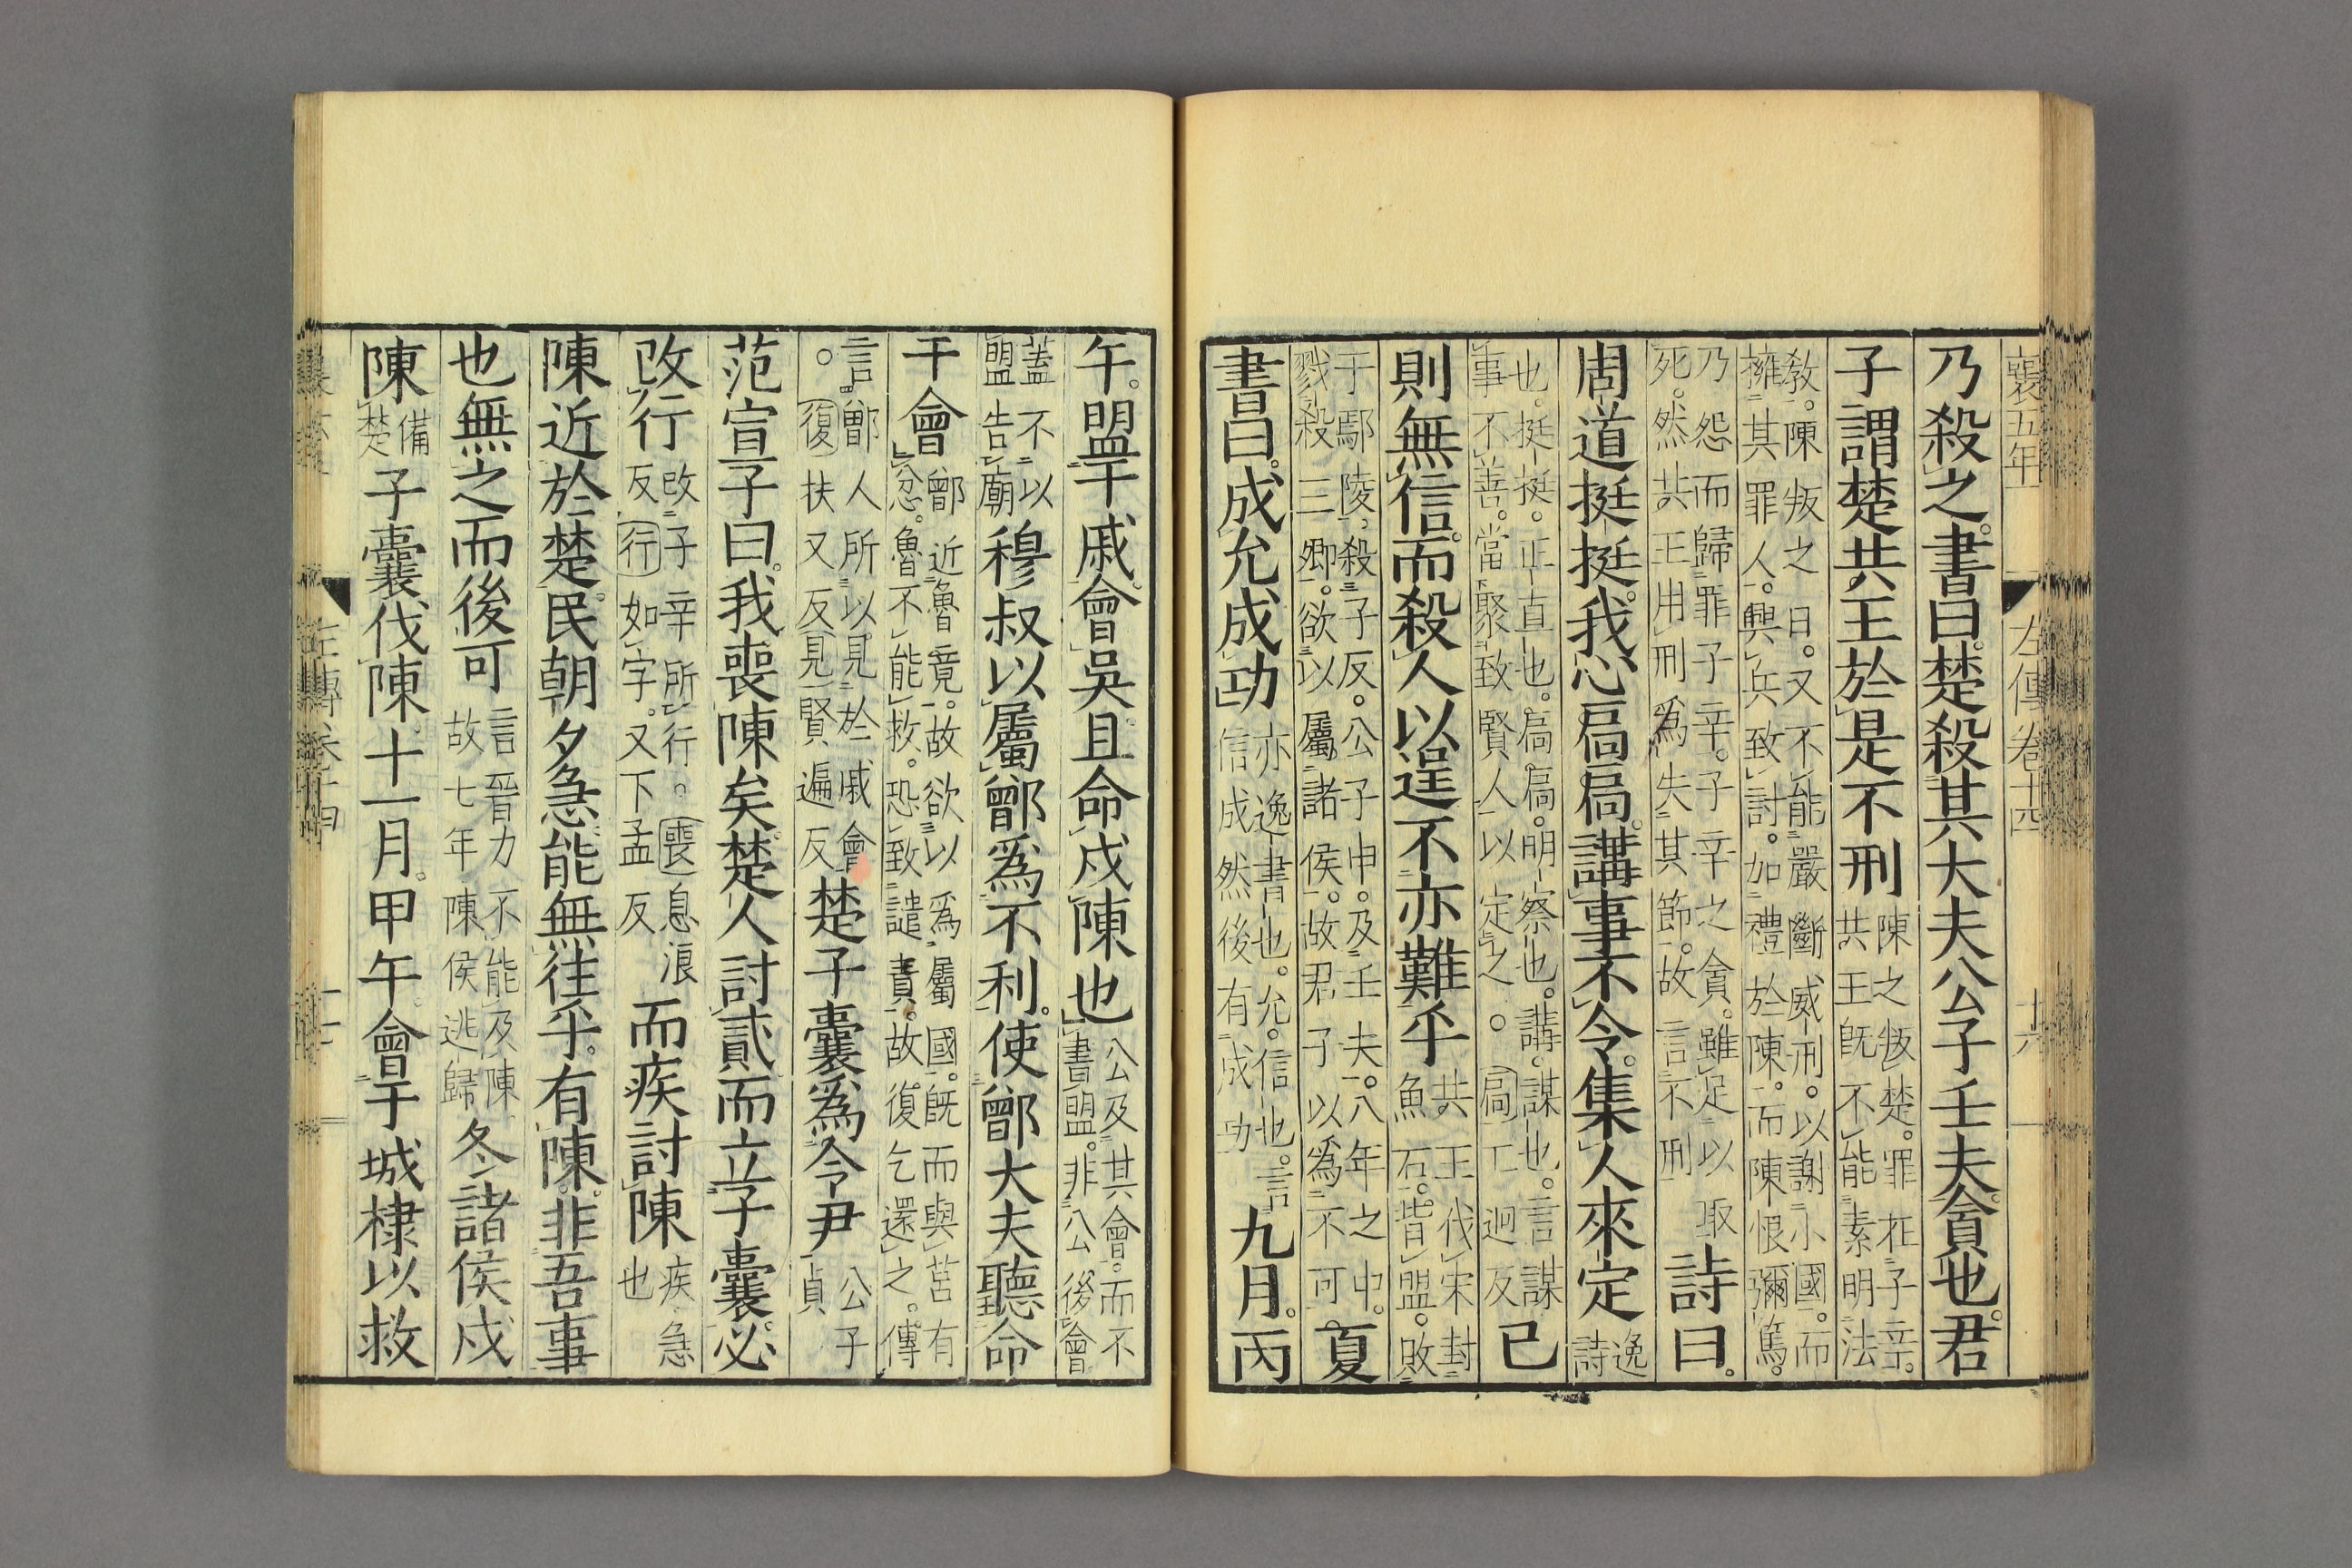 襄五年 左傳卷十四 十六
乃殺之。書曰。楚殺其大夫公子壬夫。貪也。君
子謂楚共王於是不刑
陳之叛楚。罪在子辛。
共王既不能素明法
教。陳叛之日。又不能嚴斷威刑。以謝小國。而
擁其罪人。興兵致討。加禮於陳。而陳恨彌篤。
乃怨而歸罪子辛。子辛之貪。雖足以取
死。然共王用刑爲失其節。故言不刑
詩曰。
周道挺挺。我心扃扃。講事不令。集人來定
逸
詩
也。挺挺。正直也。扃扃。明察也。講。謀也。言謀
事不善。當聚致賢人以定之。○扃工迥反
已
則無信。而殺人以逞不亦難乎
共王伐宋封
魚石。背盟。敗
于鄢陵。殺子反。公子申。及壬夫。八年之中。
戮殺三卿。欲以屬諸侯。故君子以爲不可。
夏
書曰。成允成功
亦逸書也。允。信也。言
信成然後有成功
九月。丙
午。盟于戚。會吳。且命戍陳也
公及其會。而不
書盟。非公後會
蓋不以
盟告廟
穆叔以屬鄫爲不利。使鄫大夫聽命
于會
鄫近魯竟。故欲以爲屬國。既而與莒有
忿。魯不能救。恐致譴責。故復乞還之。傳
言鄫人所以見於戚會
○復扶又反見賢遍反
楚子囊爲令尹
公子
貞
范宣子曰。我喪陳矣。楚人討貳而立子囊。必
改行
改子辛所行。○喪息浪
反行如字。又下孟反
而疾討陳
疾急
也
陳近於楚。民朝夕急。能無往乎。有陳。非吾事
也無之而後可
言晉力不能及陳
故七年陳侯逃歸
冬諸侯戍
陳
備
楚
子囊伐陳。十一月。甲午。會于城棣以救